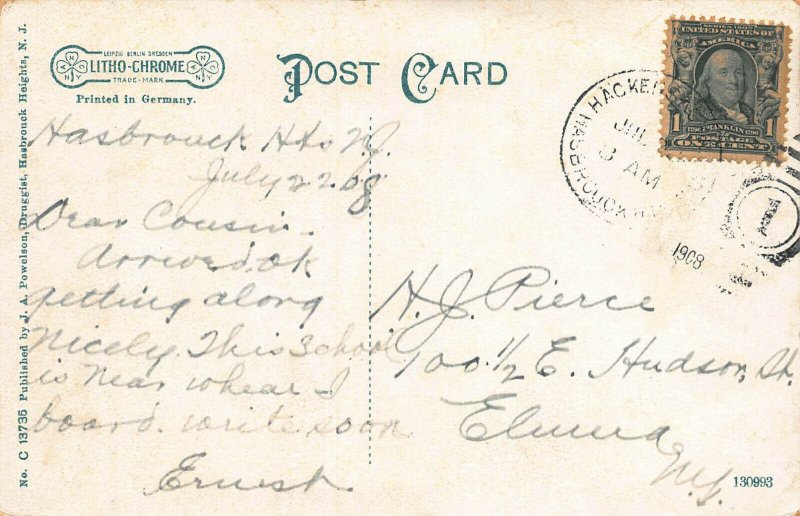 No. C 13735 Published by J. A. Powelson, Druggist, Hasbrouck Heights, N. J.
LEIPZIG BERLIN DRESDEN
LITHO-CHROME
TRADE-MARK
Printed in Germany.
POST CARD
Hasbrouck Hts NJ.
July 22 08
Dear Cousin.
Arrived ok
getting along
Nicely. This School
is Near whear I
board. write soon
Ernest
HACKENSACK
HASBROUCK
JUL
8 AM
1908
1
SERIES 1902
UNITED STATES OF
AMERICA
1 1706 FRANKLIN 1790 1
POSTAGE
ONE CENT
H. J. Pierce
100 1/2 E. Hudson, St.
Elmira
N.Y.
130993